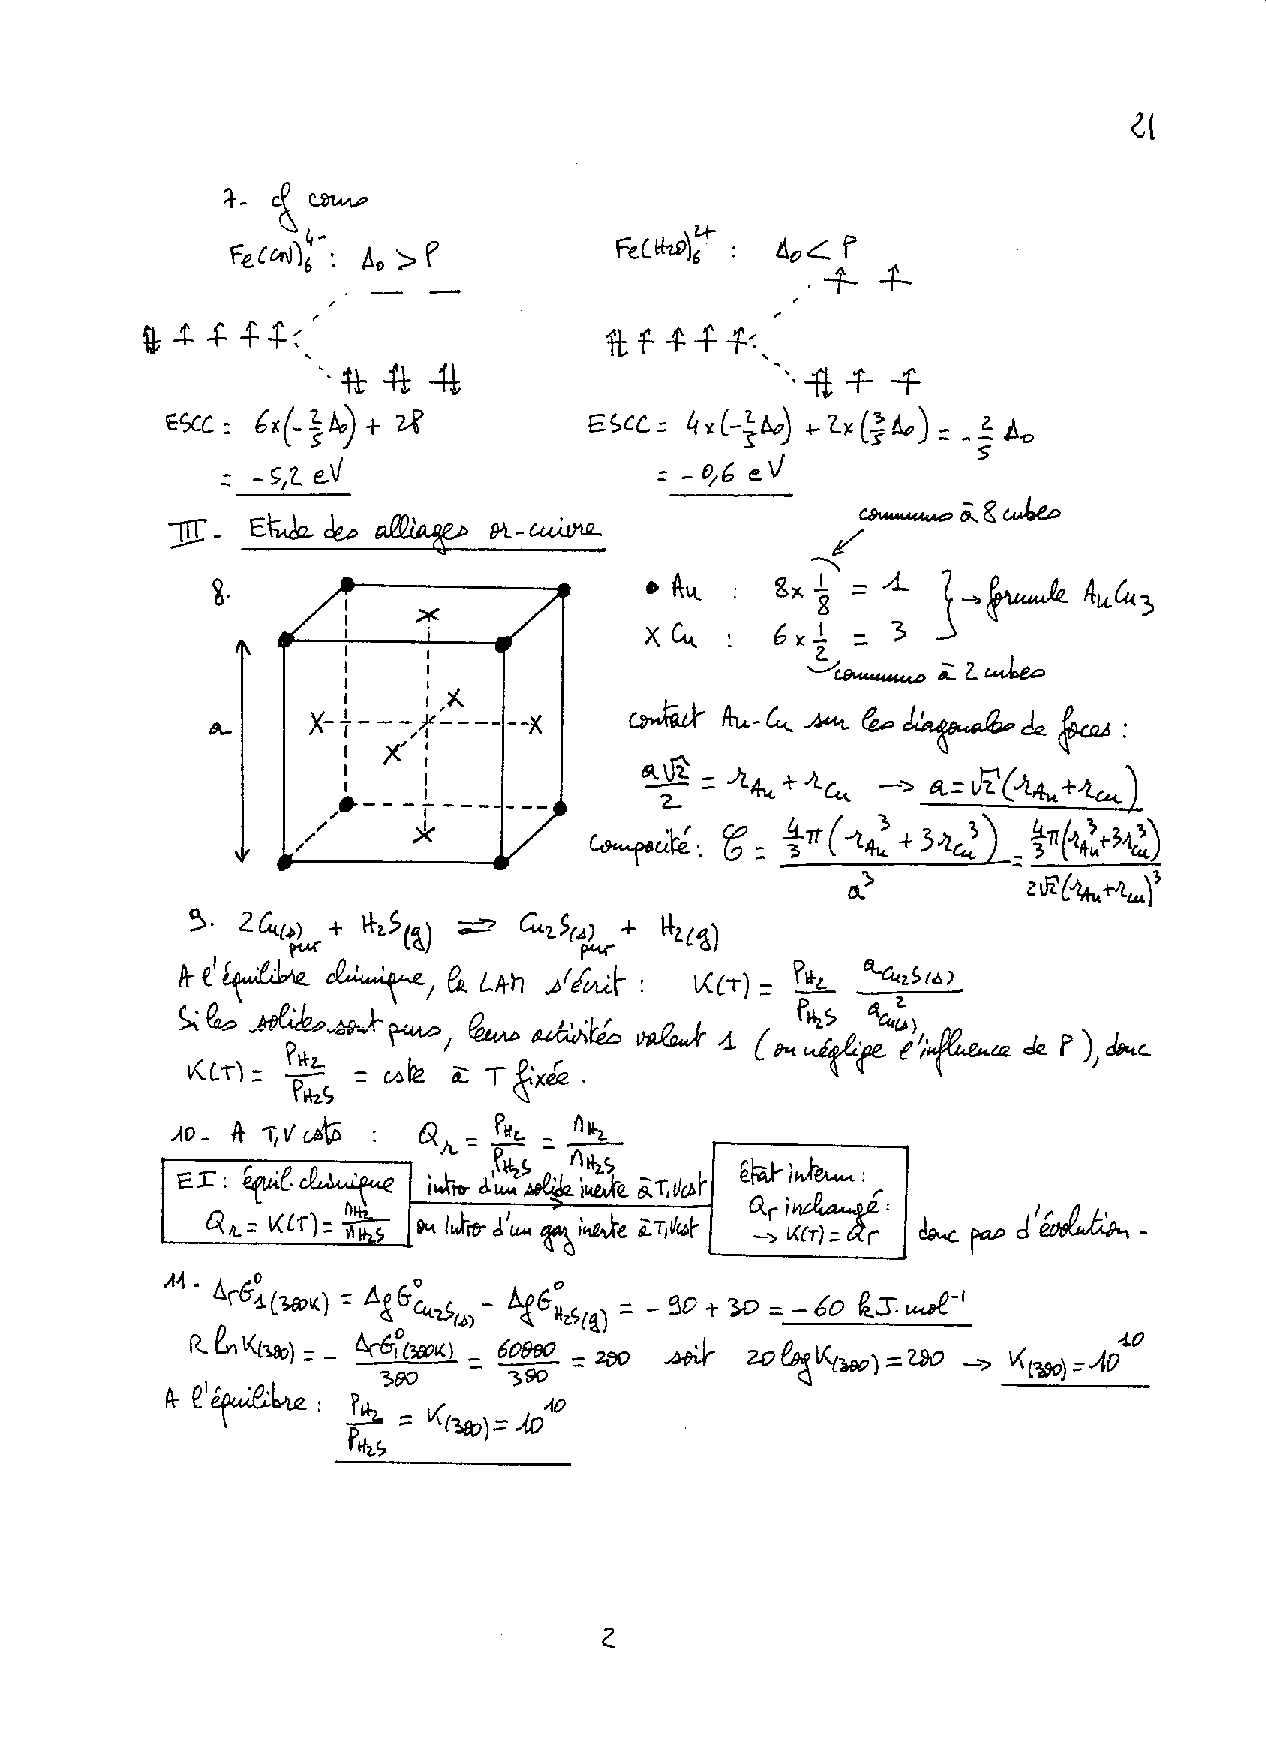 21
7- cf cours
Fe(CN)₆⁴⁻ : Δ₀ > P
Fe(H₂O)₆²⁺ : Δ₀ < P
ESCC = 6x(-2/5 Δ₀) + 2P
= -5,2 eV
ESCC = 4x(-2/5 Δ₀) + 2x(3/5 Δ₀) = -2/5 Δ₀
= -0,6 eV
III - Etude des alliages or-cuivre
communs à 8 cubes
8.
a
● Au : 8x 1/8 = 1
X Cu : 6x 1/2 = 3
} → formule AuCu₃
communs à 2 cubes
contact Au-Cu sur les diagonales de faces :
a√2/2 = r_Au + r_Cu → a = √2(r_Au + r_Cu)
Compacité : C = 4/3 π(r_Au³ + 3r_Cu³)/a³ = 4/3 π(r_Au³ + 3r_Cu³)/2√2(r_Au + r_Cu)³
9. 2Cu(s) pur + H₂S(g) ⇌ Cu₂S(s) pur + H₂(g)
A l'équilibre chimique, la LAM s'écrit : K(T) = P_H₂/P_H₂S a_Cu₂S(s)/a²_Cu(s)
Si les solides sont purs, leurs activités valent 1 (on néglige l'influence de P), donc
K(T) = P_H₂/P_H₂S = cste à T fixée.
10- A T,V csts : Q_r = P_H₂/P_H₂S = n_H₂/n_H₂S
EI : équil. chimique
Q_r = K(T) = n_H₂/n_H₂S
intro d'un solide inerte à T,Vcst
ou Intro d'un gaz inerte à T,Vcst
état interm :
Qr inchangé :
→ K(T) = Qr
donc pas d'évolution -
11- ΔrG°₁(300K) = ΔfG°Cu₂S(s) - ΔfG°H₂S(g) = -90 + 30 = -60 kJ.mol⁻¹
R ln K(300) = - ΔrG°₁(300K)/300 = 60000/300 = 200 soit 20 log K(300) = 200 → K(300) = 10¹⁰
A l'équilibre : P_H₂/P_H₂S = K(300) = 10¹⁰
2